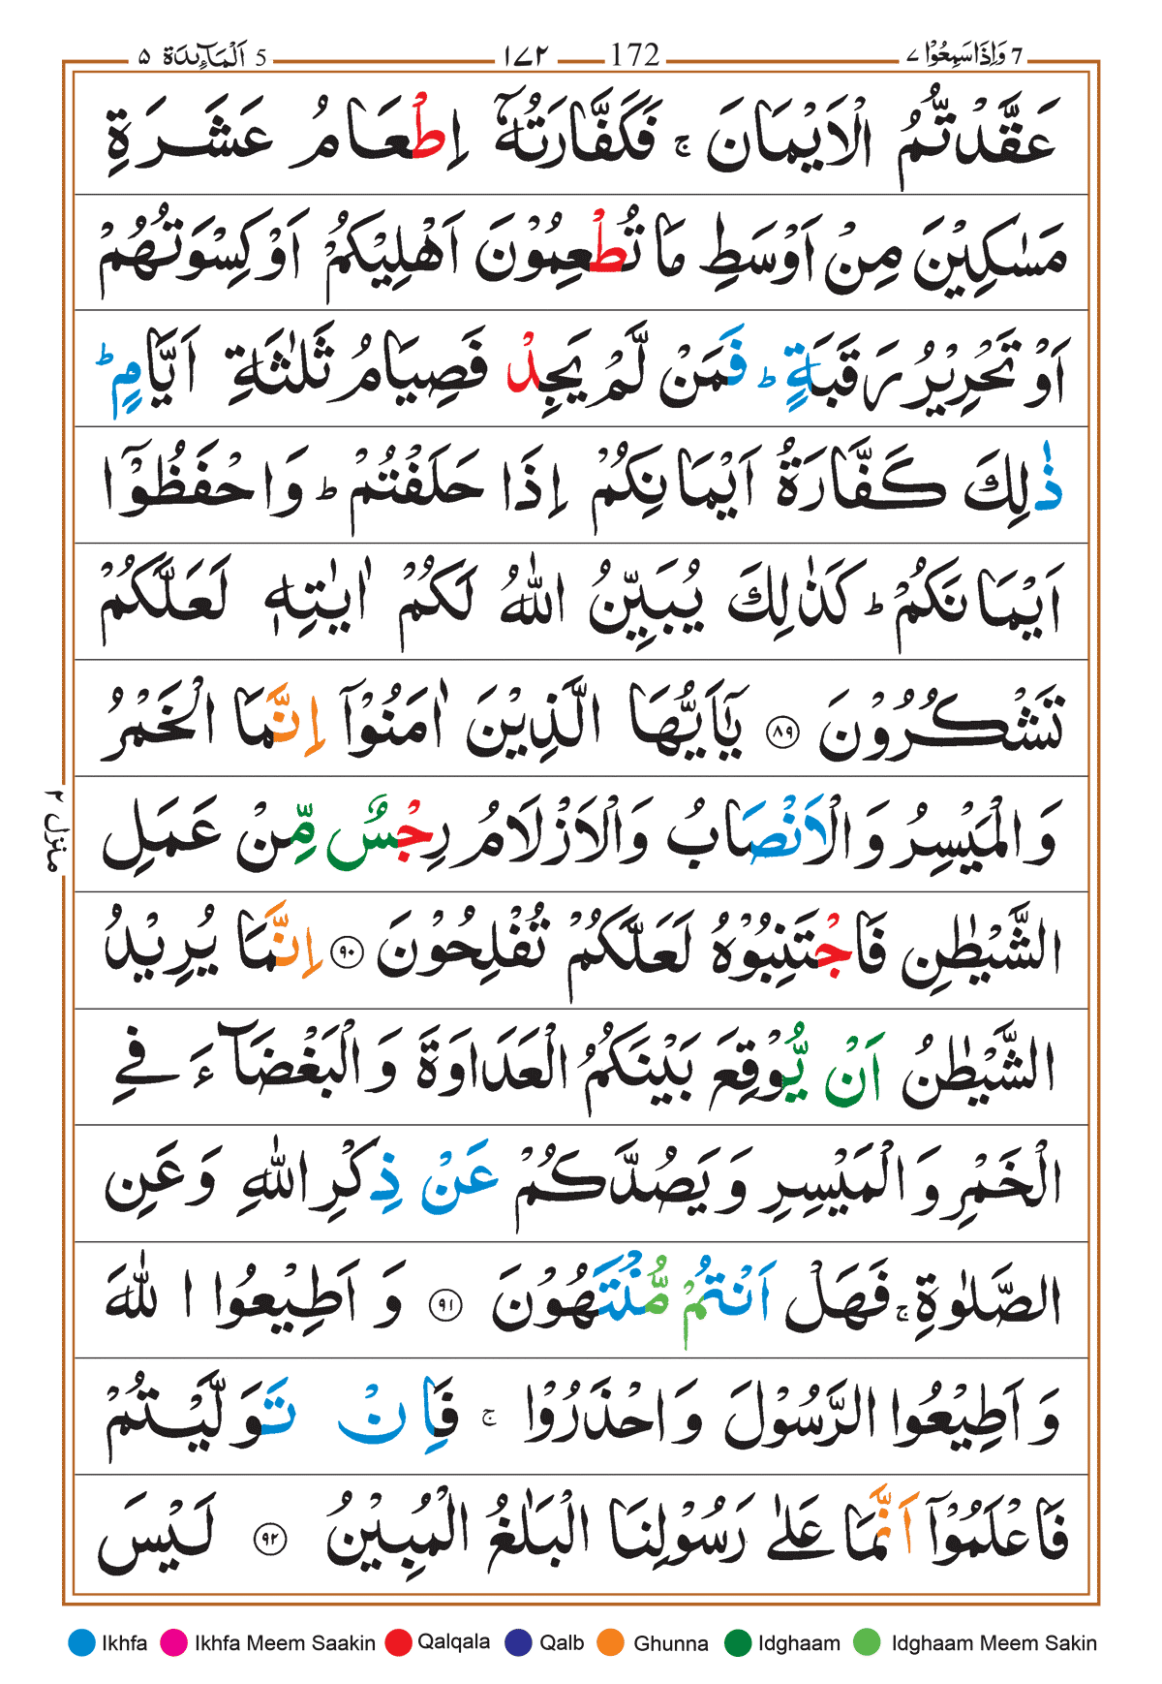 7 وَاِذَا سَمِعُوْا ٧ 172 ١٧٢ 5 اَلْمَآئِدَة ٥
عَقَّدْتُّمُ الْاَيْمَانَ ۚ فَكَفَّارَتُهٗۤ اِطْعَامُ عَشَرَةِ
مَسٰكِيْنَ مِنْ اَوْسَطِ مَا تُطْعِمُوْنَ اَهْلِيْكُمْ اَوْ كِسْوَتُهُمْ
اَوْ تَحْرِيْرُ رَقَبَةٍ ؕ فَمَنْ لَّمْ يَجِدْ فَصِيَامُ ثَلٰثَةِ اَيَّامٍ ؕ
ذٰلِكَ كَفَّارَةُ اَيْمَانِكُمْ اِذَا حَلَفْتُمْ ؕ وَاحْفَظُوْۤا
اَيْمَانَكُمْ ؕ كَذٰلِكَ يُبَيِّنُ اللّٰهُ لَكُمْ اٰيٰتِهٖ لَعَلَّكُمْ
تَشْكُرُوْنَ ٨٩ يٰۤاَيُّهَا الَّذِيْنَ اٰمَنُوْۤا اِنَّمَا الْخَمْرُ
وَالْمَيْسِرُ وَالْاَنْصَابُ وَالْاَزْلَامُ رِجْسٌ مِّنْ عَمَلِ
الشَّيْطٰنِ فَاجْتَنِبُوْهُ لَعَلَّكُمْ تُفْلِحُوْنَ ٩٠ اِنَّمَا يُرِيْدُ
الشَّيْطٰنُ اَنْ يُّوْقِعَ بَيْنَكُمُ الْعَدَاوَةَ وَالْبَغْضَآءَ فِي
الْخَمْرِ وَالْمَيْسِرِ وَيَصُدَّكُمْ عَنْ ذِكْرِ اللّٰهِ وَعَنِ
الصَّلٰوةِ ۚ فَهَلْ اَنْتُمْ مُّنْتَهُوْنَ ٩١ وَاَطِيْعُوا اللّٰهَ
وَاَطِيْعُوا الرَّسُوْلَ وَاحْذَرُوْا ۚ فَاِنْ تَوَلَّيْتُمْ
فَاعْلَمُوْۤا اَنَّمَا عَلٰى رَسُوْلِنَا الْبَلٰغُ الْمُبِيْنُ ٩٢ لَيْسَ
منزل ٢
Ikhfa Ikhfa Meem Saakin Qalqala Qalb Ghunna Idghaam Idghaam Meem Sakin